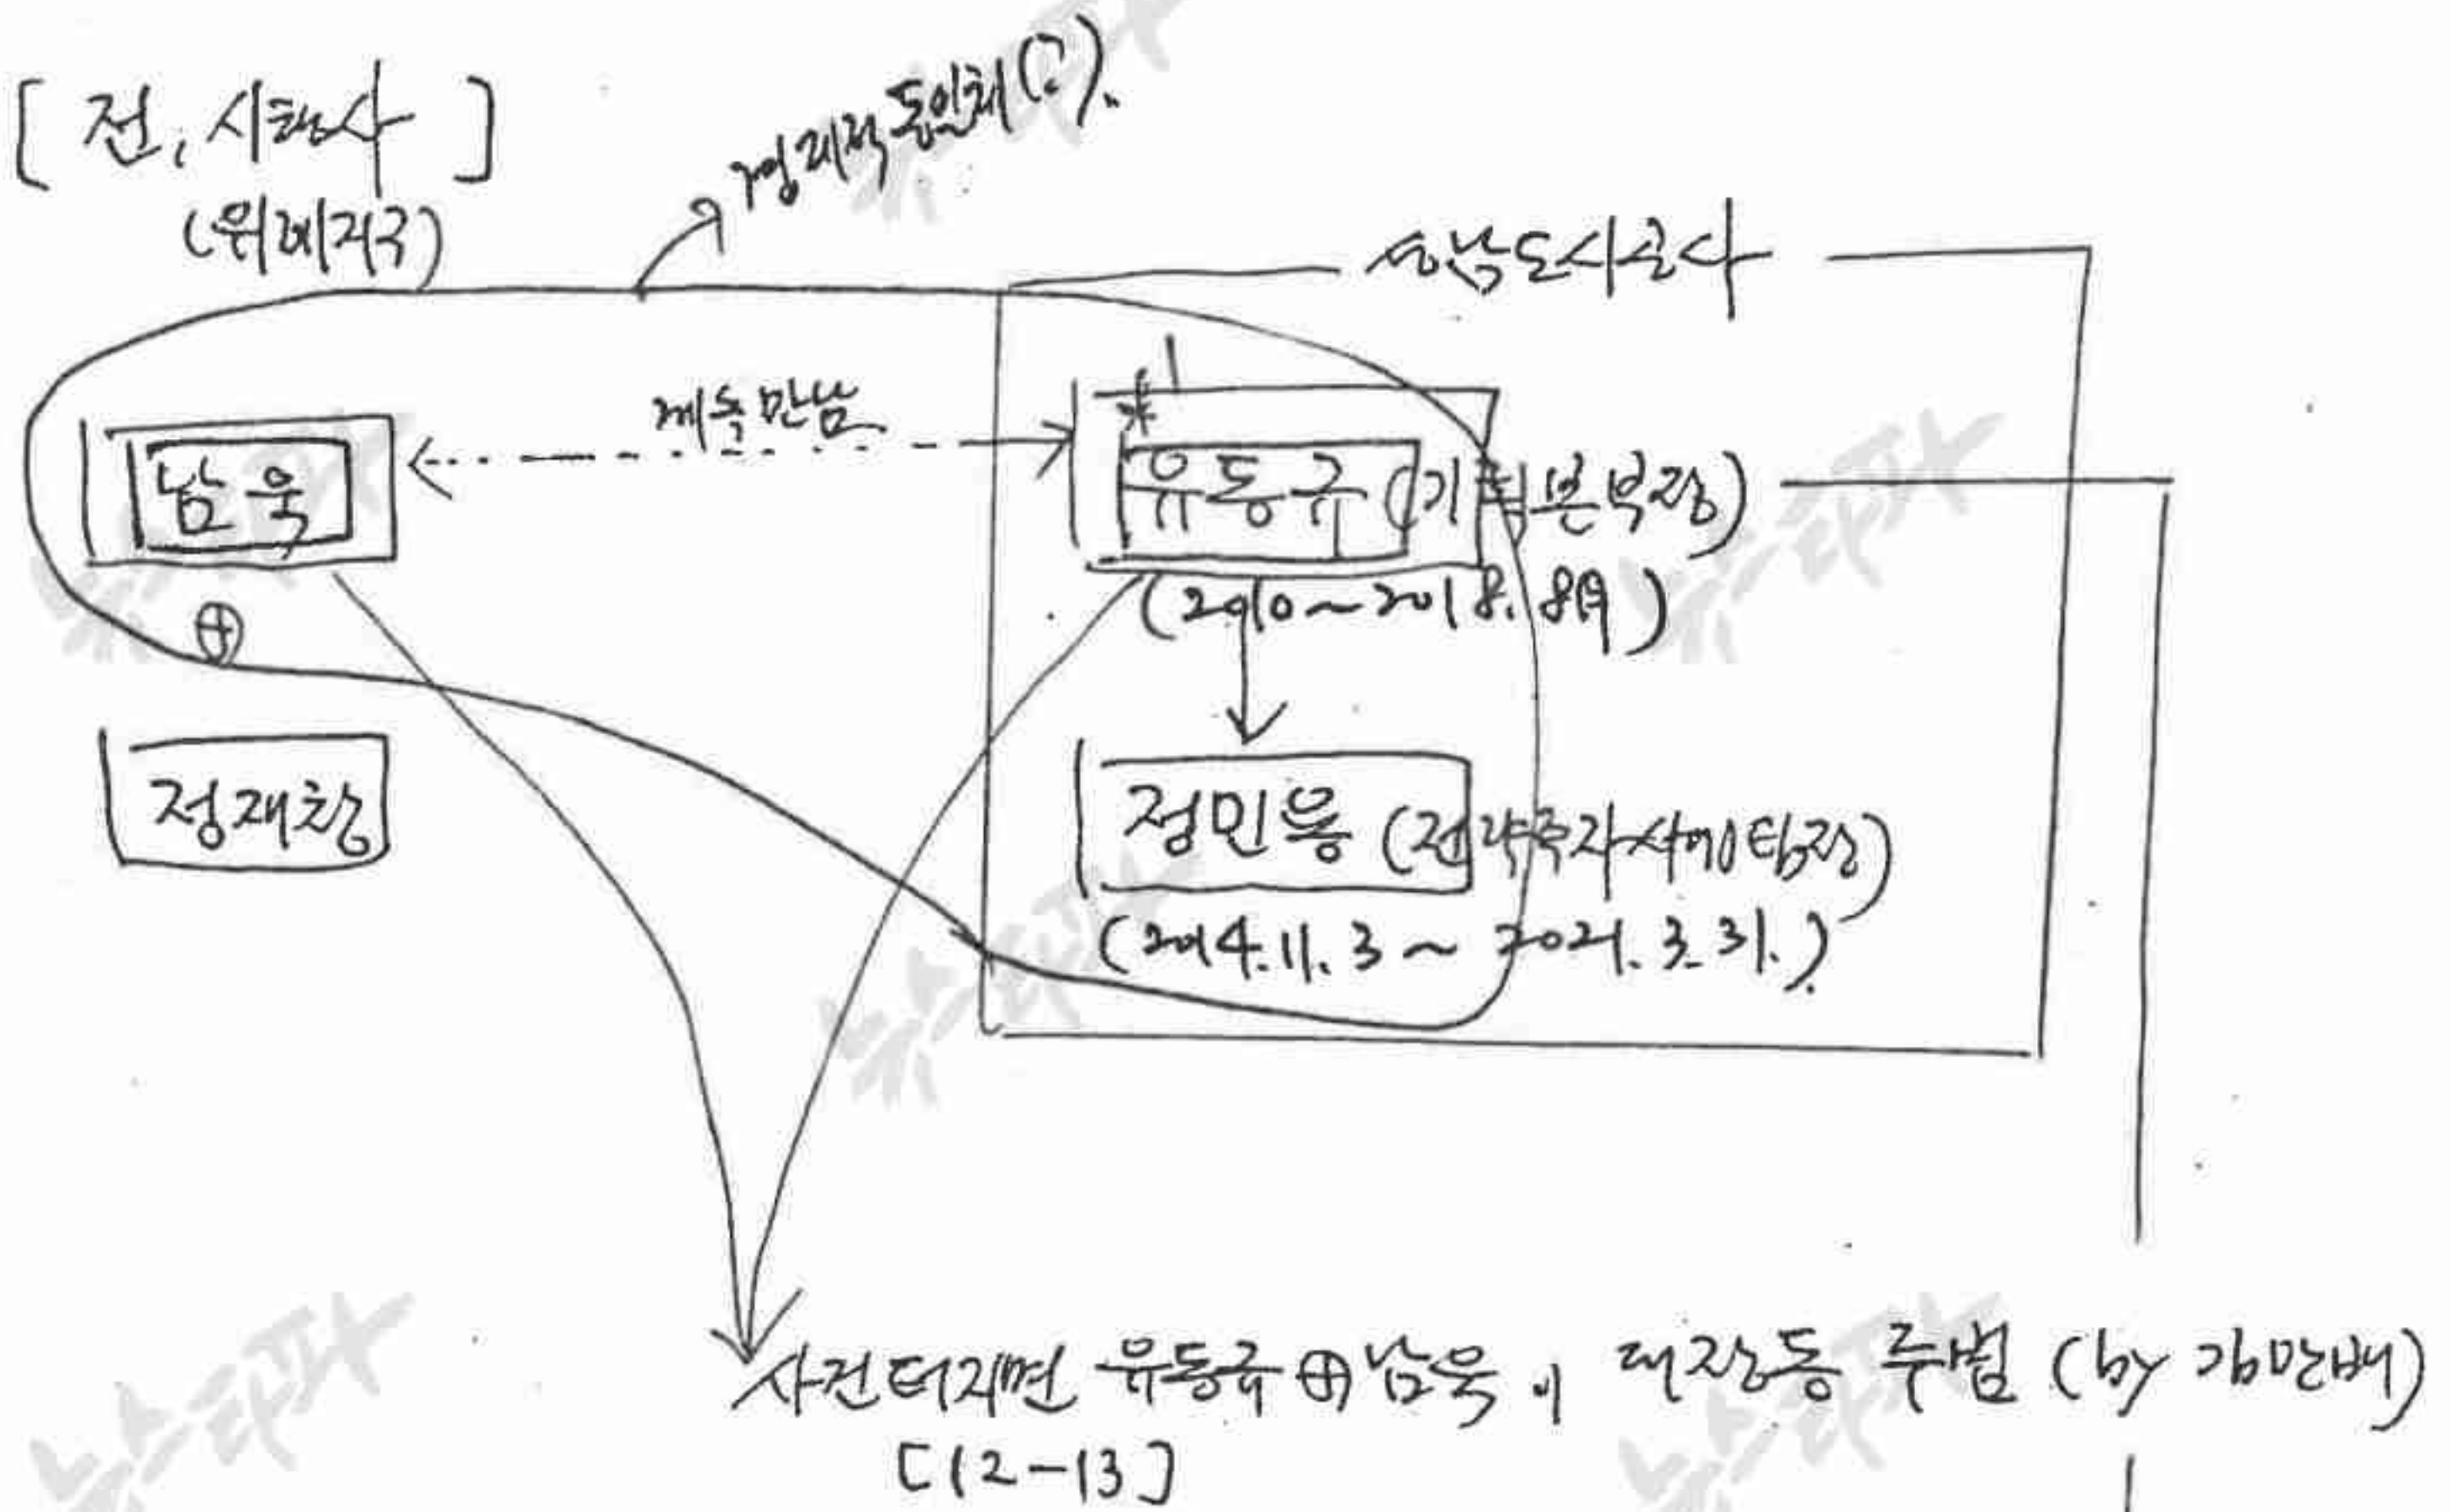 [ 전, 시행사 ]
(위례지구)
경제적 동일체(?).
성남도시공사
계속 만남
남욱
유동규 (기획본부장)
(2010~2018. 8月)
⊕
정재창
정민용 (전략투자사업팀장)
(2014.11.3 ~ 2021.3.31.)
사건터지면 유동규 ⊕ 남욱이 대장동 주범 (by 김만배)
[12-13]
뉴스타파